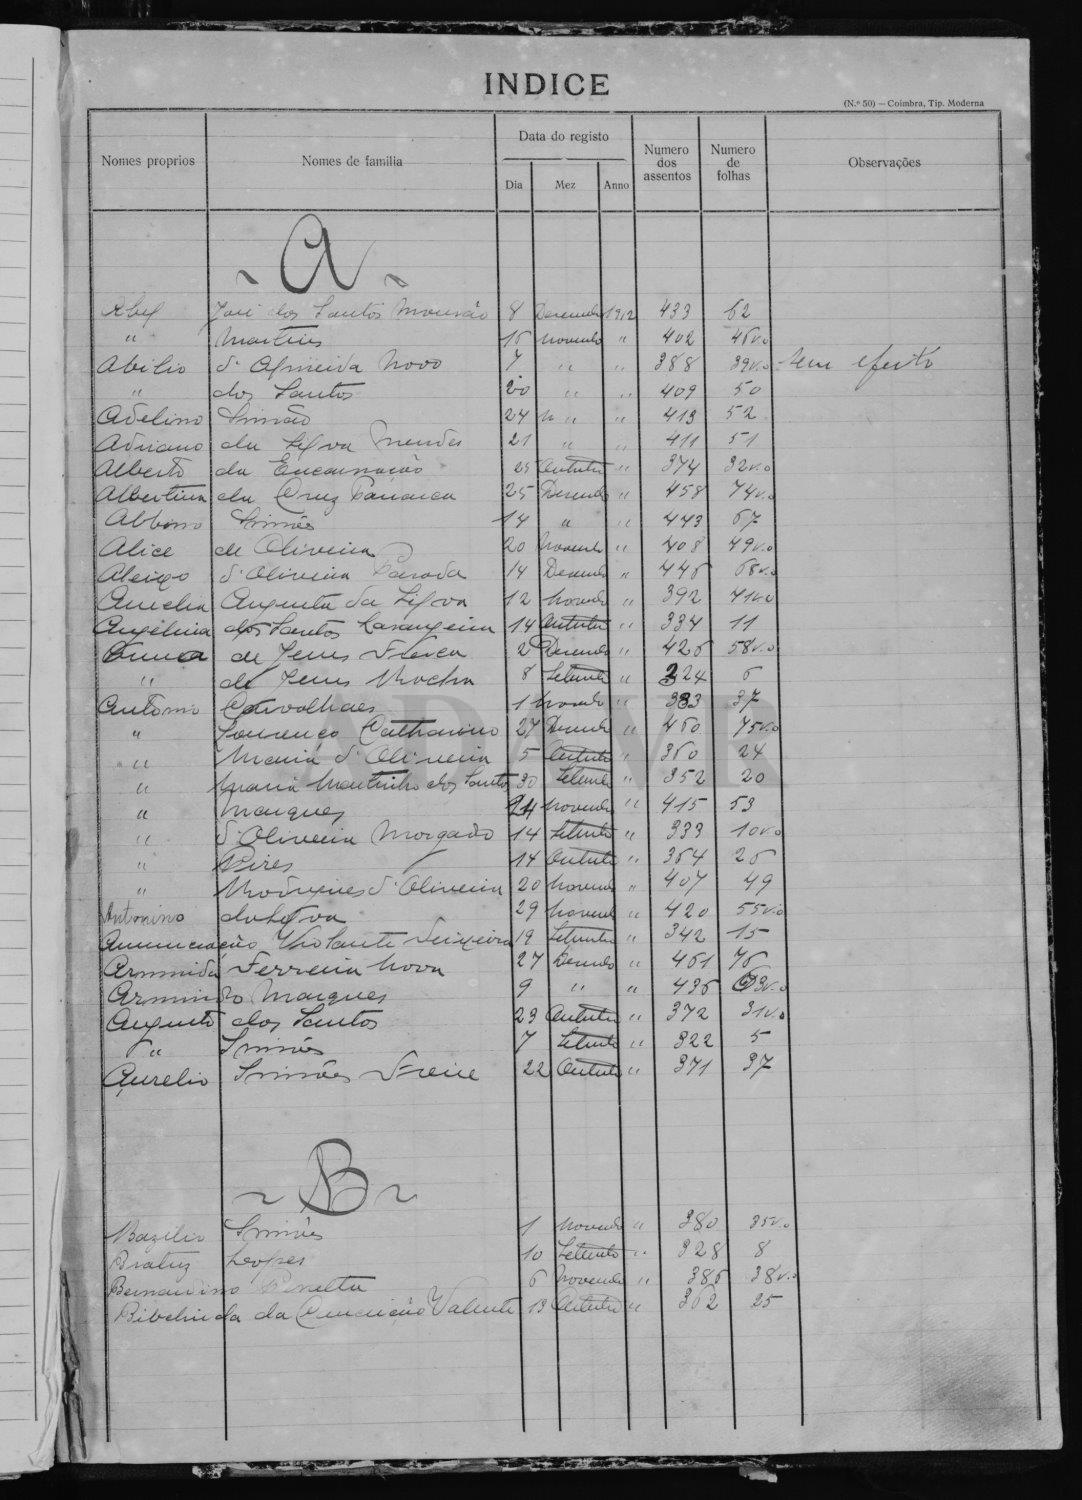 INDICE
(N.º 50) — Coimbra, Tip. Moderna
Nomes proprios Nomes de familia Data do registo Dia Mez Anno Numero dos assentos Numero de folhas Observações
A
Abel José dos Santos Mourão 8 Dezembro 1912 433 62
" Martins 15 Novembro " 402 46v.o
Abilio d'Almeida Novo 7 " " 388 39v.o sem efeito
" dos Santos 20 " " 409 50
Adelino Simão 24 " " 413 52
Adriano da Silva Mendes 21 " " 411 51
Alberto da Encarnação 25 Outubro " 374 32v.o
Albertina da Cruz 25 Dezembro " 458 74v.o
Albino Simões 14 " " 443 67
Alice de Oliveira 20 Novembro " 408 49v.o
Aleixo d'Oliveira Parada 14 Dezembro " 446 68v.o
Amelia Augusta da Silva 12 Novembro " 392 41v.o
Angelina dos Santos Larangeira 14 Outubro " 334 11
Anna de Jesus 2 Dezembro " 426 58v.o
" de Jesus Rocha 8 Setembro " 324 6
Antonio Carvalhaes 1 Novembro " 383 37
" Lourenço Catharino 27 Dezembro " 460 75v.o
" Maria d'Oliveira 5 Outubro " 360 24
" Maria Martinho dos Santos 30 Setembro " 352 20
" Marques 24 Novembro " 415 53
" d'Oliveira Morgado 14 Setembro " 333 10v.o
" Pires 14 Outubro " 364 26
" Rodrigues d'Oliveira 20 Novembro " 407 49
Antonino da Silva 29 Novembro " 420 55v.o
Annunciação Violante Teixeira 19 Setembro " 342 15
Arminda Ferreira Nova 27 Dezembro " 461 76
Armindo Marques 9 " " 436 63v.o
Augusto dos Santos 23 Outubro " 372 31v.o
" Simões 7 Setembro " 322 5
Aurelio Simões Freire 22 Outubro " 371 37
B
Bazilio Simões 1 Novembro " 380 35v.o
Beatriz Lopes 10 Setembro " 328 8
Bernardino 6 Novembro " 386 38v.o
Bibelinda da Conceição Valente 13 Outubro " 362 25